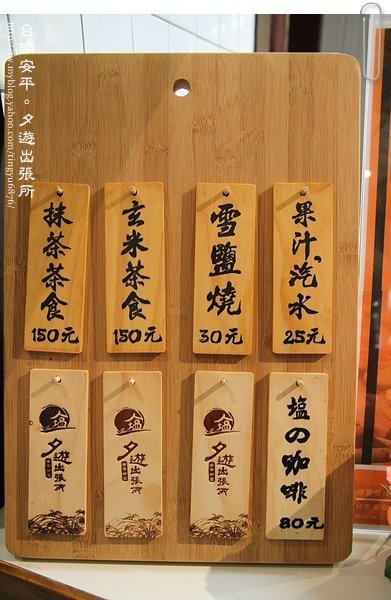 台南安平。夕遊出張所
http://www.myblog.yahoo.com/tingyu6876/
抹茶茶食
150元
玄米茶食
150元
雪鹽燒
30元
果汁、汽水
25元
塩
夕遊出張所
塩
夕遊出張所
塩
夕遊出張所
塩の咖啡
80元